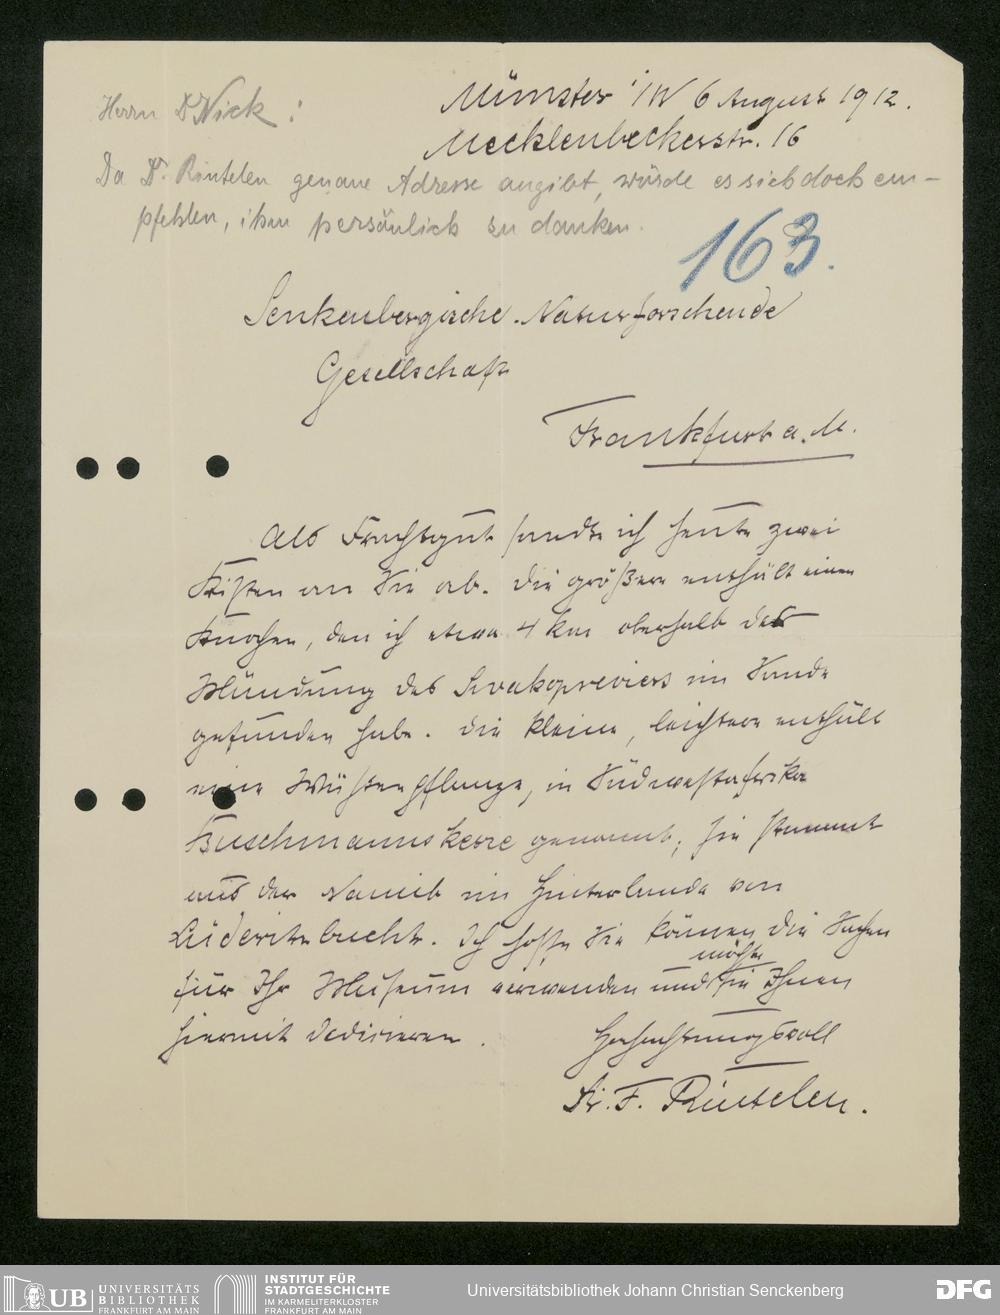 Herrn Dr Nick:
Münster i/W 6 August 1912.
Mecklenbeckerstr. 16
Da Dr. Rintelen genaue Adresse angibt, würde es sich doch em-
pfehlen, ihm persönlich zu danken.
163.
Senkenbergische Naturforschende
Gesellschaft
Frankfurt a. M.
Als Frachtgut sandte ich heute zwei
Kisten an Sie ab. Die größere enthält einen
Knochen, den ich etwa 4 km oberhalb der
Mündung des Swakopreviers im Sande
gefunden habe. Die kleine, leichtere enthält
eine Wüstenpflanze, in Südwestafrika
Buschmannskerze genannt; sie stammt
aus der Namib im Hinterlande von
Lüderitzbucht. Ich hoffe Sie können die Sachen
für Ihr Museum verwenden und möchte sie Ihnen
hiermit dedicieren.
Hochachtungsvoll
Dr. F. Rintelen.
UB UNIVERSITÄTS
BIBLIOTHEK
FRANKFURT AM MAIN
INSTITUT FÜR
STADTGESCHICHTE
IM KARMELITERKLOSTER
FRANKFURT AM MAIN
Universitätsbibliothek Johann Christian Senckenberg
DFG